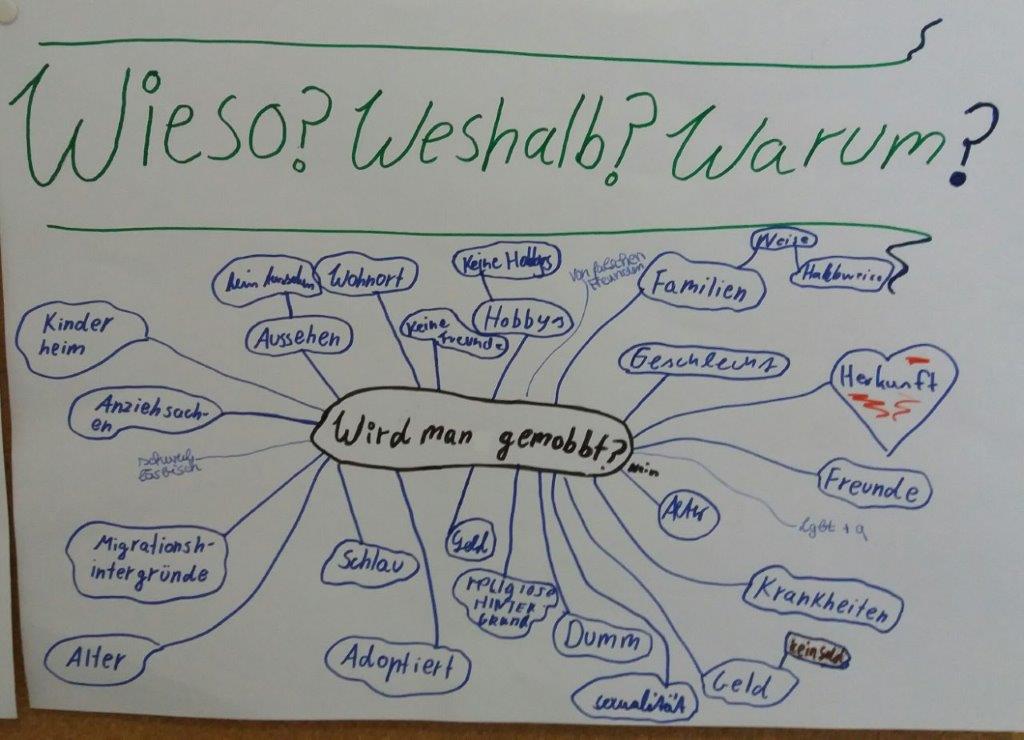 Wieso? Weshalb? Warum?
Wird man gemobbt?
Kinder
heim
Aussehen
Wohnort
Keine Hobbys
Hobbys
keine
Freunde
von falschen
Freunden
Familien
Geschlecht
Herkunft
Freunde
Lgbt + q
Alter
Krankheiten
kein Geld
Geld
sexualität
Dumm
religiöse
HINTER
GRUND
Geld
Adoptiert
Schlau
Alter
Migrationsh-
intergründe
schwul
Anziehsach-
en